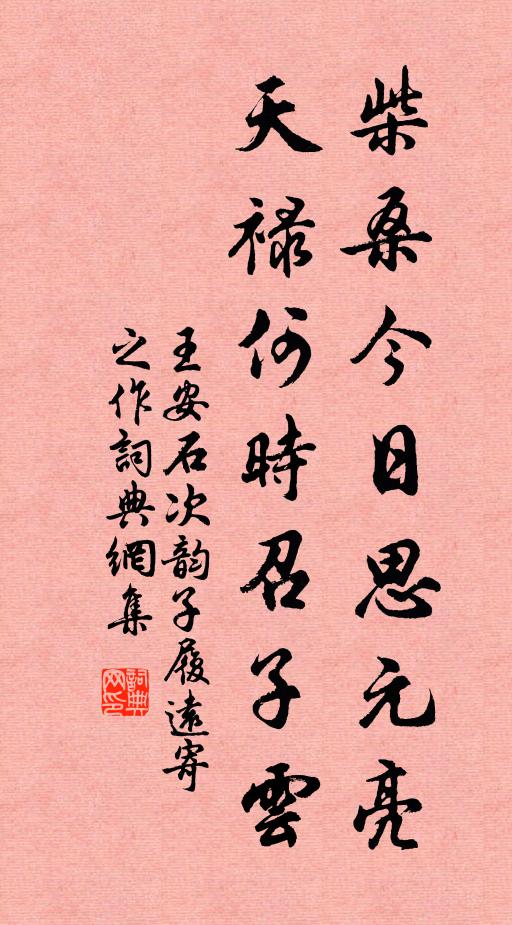 柴桑今日思元亮
天禄何時召子雲
王安石次韵子履遠寄
之作詞典網集
詞典
网印